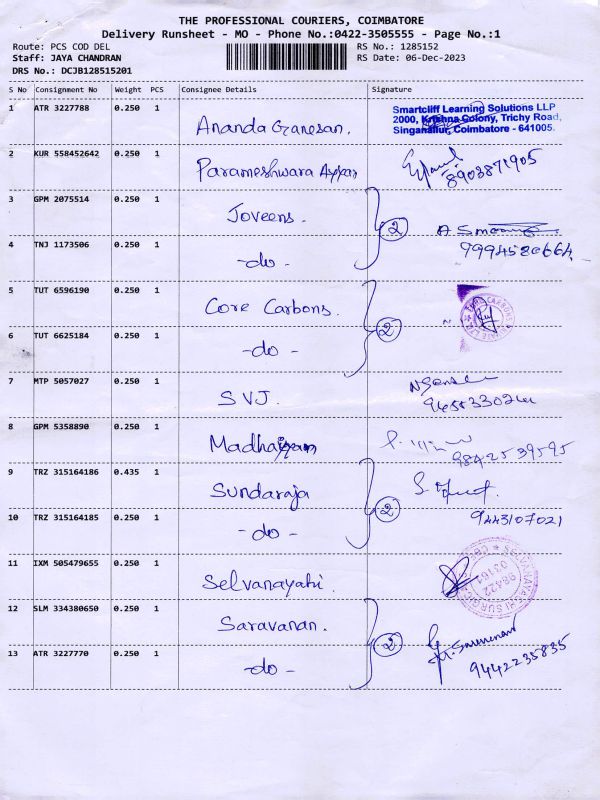 THE PROFESSIONAL COURIERS, COIMBATORE
Delivery Runsheet - MO - Phone No.:0422-3505555 - Page No.:1
Route: PCS COD DEL
RS No.: 1285152
Staff: JAYA CHANDRAN
RS Date: 06-Dec-2023
DRS No.: DCJB128515201
S No Consignment No Weight PCS Consignee Details Signature
1 ATR 3227788 0.250 1 Ananda Ganesan.
Smartcliff Learning Solutions LLP
2000, Krishna Colony, Trichy Road,
Singanallur, Coimbatore - 641005.
2 KUR 558452642 0.250 1 Parameshwara
8903871905
3 GPM 2075514 0.250 1 Joveens.
2
4 TNJ 1173506 0.250 1 -do-
5 TUT 6596190 0.250 1 Core Carbons.
2
6 TUT 6625184 0.250 1 -do-
7 MTP 5057027 0.250 1 SVJ.
8 GPM 5358890 0.250 1
9842539595
9 TRZ 315164186 0.435 1 Sundaraja
2
10 TRZ 315164185 0.250 1 -do-
9443107021
11 IXM 505479655 0.250 1
12 SLM 334380650 0.250 1 Saravanan.
2
13 ATR 3227770 0.250 1 -do-
9442235835